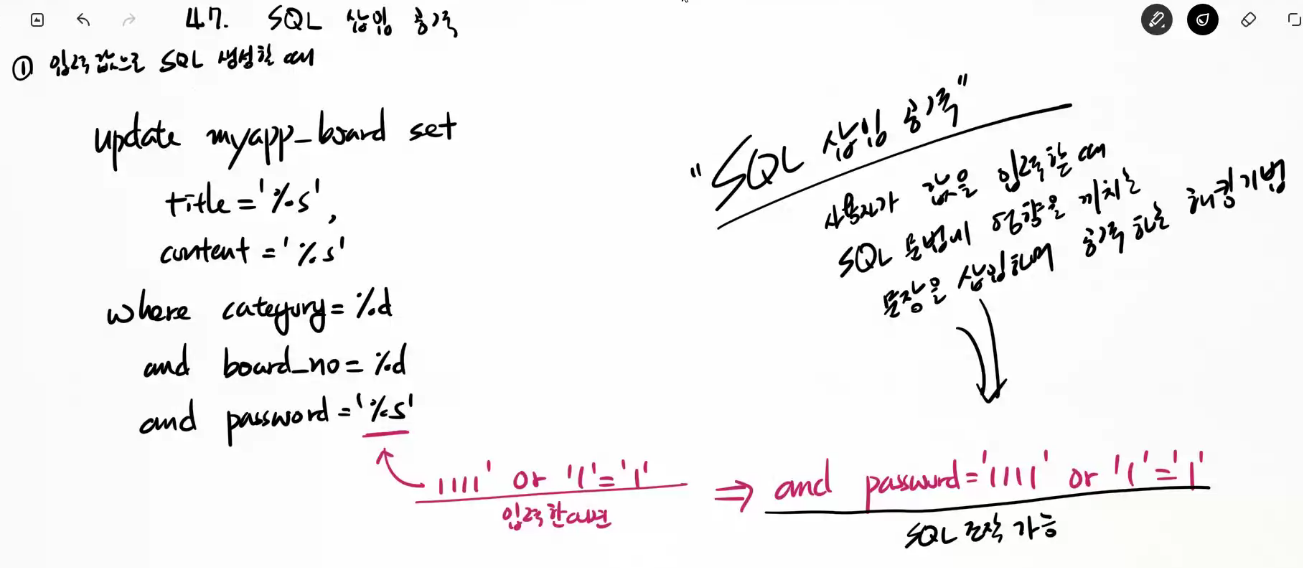 47. SQL 삽입 공격
① 입력 값으로 SQL 생성할 때
update myapp_board set
title='%s',
content='%s'
where category=%d
and board_no=%d
and password='%s'
1111' or '1'='1'
입력한다면
"SQL 삽입 공격"
사용자가 값을 입력할 때
SQL 문법에 영향을 끼치는
문장을 삽입하여 공격하는 해킹기법
⇒ and password='1111' or '1'='1'
SQL 조작 가능